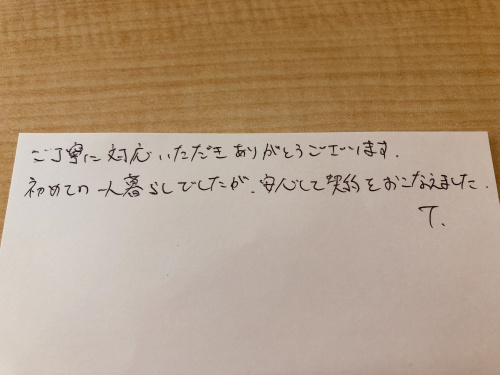 ご丁寧に対応いただきありがとうございます.
初めての一人暮らしでしたが、安心して契約をおこなえました.
T.